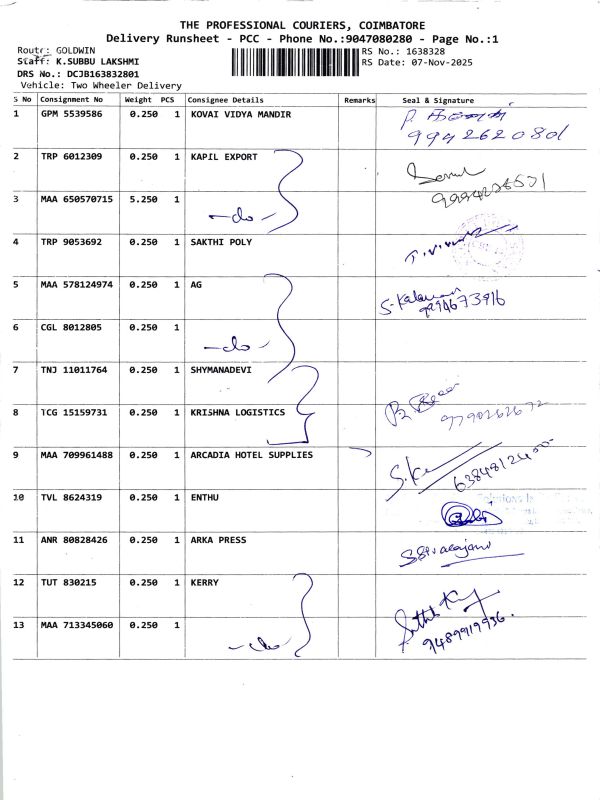 THE PROFESSIONAL COURIERS, COIMBATORE
Delivery Runsheet - PCC - Phone No.:9047080280 - Page No.:1
Route: GOLDWIN RS No.: 1638328
Staff: K.SUBBU LAKSHMI RS Date: 07-Nov-2025
DRS No.: DCJB163832801
Vehicle: Two Wheeler Delivery
S No Consignment No Weight PCS Consignee Details Remarks Seal & Signature
1 GPM 5539586 0.250 1 KOVAI VIDYA MANDIR
2 TRP 6012309 0.250 1 KAPIL EXPORT
3 MAA 650570715 5.250 1
-do-
4 TRP 9053692 0.250 1 SAKTHI POLY
5 MAA 578124974 0.250 1 AG
S. Kalavani
9294673916
6 CGL 8012805 0.250 1
-do-
7 TNJ 11011764 0.250 1 SHYMANADEVI
8 TCG 15159731 0.250 1 KRISHNA LOGISTICS
9 MAA 709961488 0.250 1 ARCADIA HOTEL SUPPLIES
10 TVL 8624319 0.250 1 ENTHU
11 ANR 80828426 0.250 1 ARKA PRESS
12 TUT 830215 0.250 1 KERRY
13 MAA 713345060 0.250 1
-do-
9489919936.